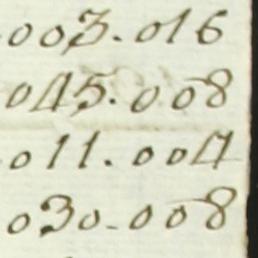 003.016
045.008
011.004
030-008